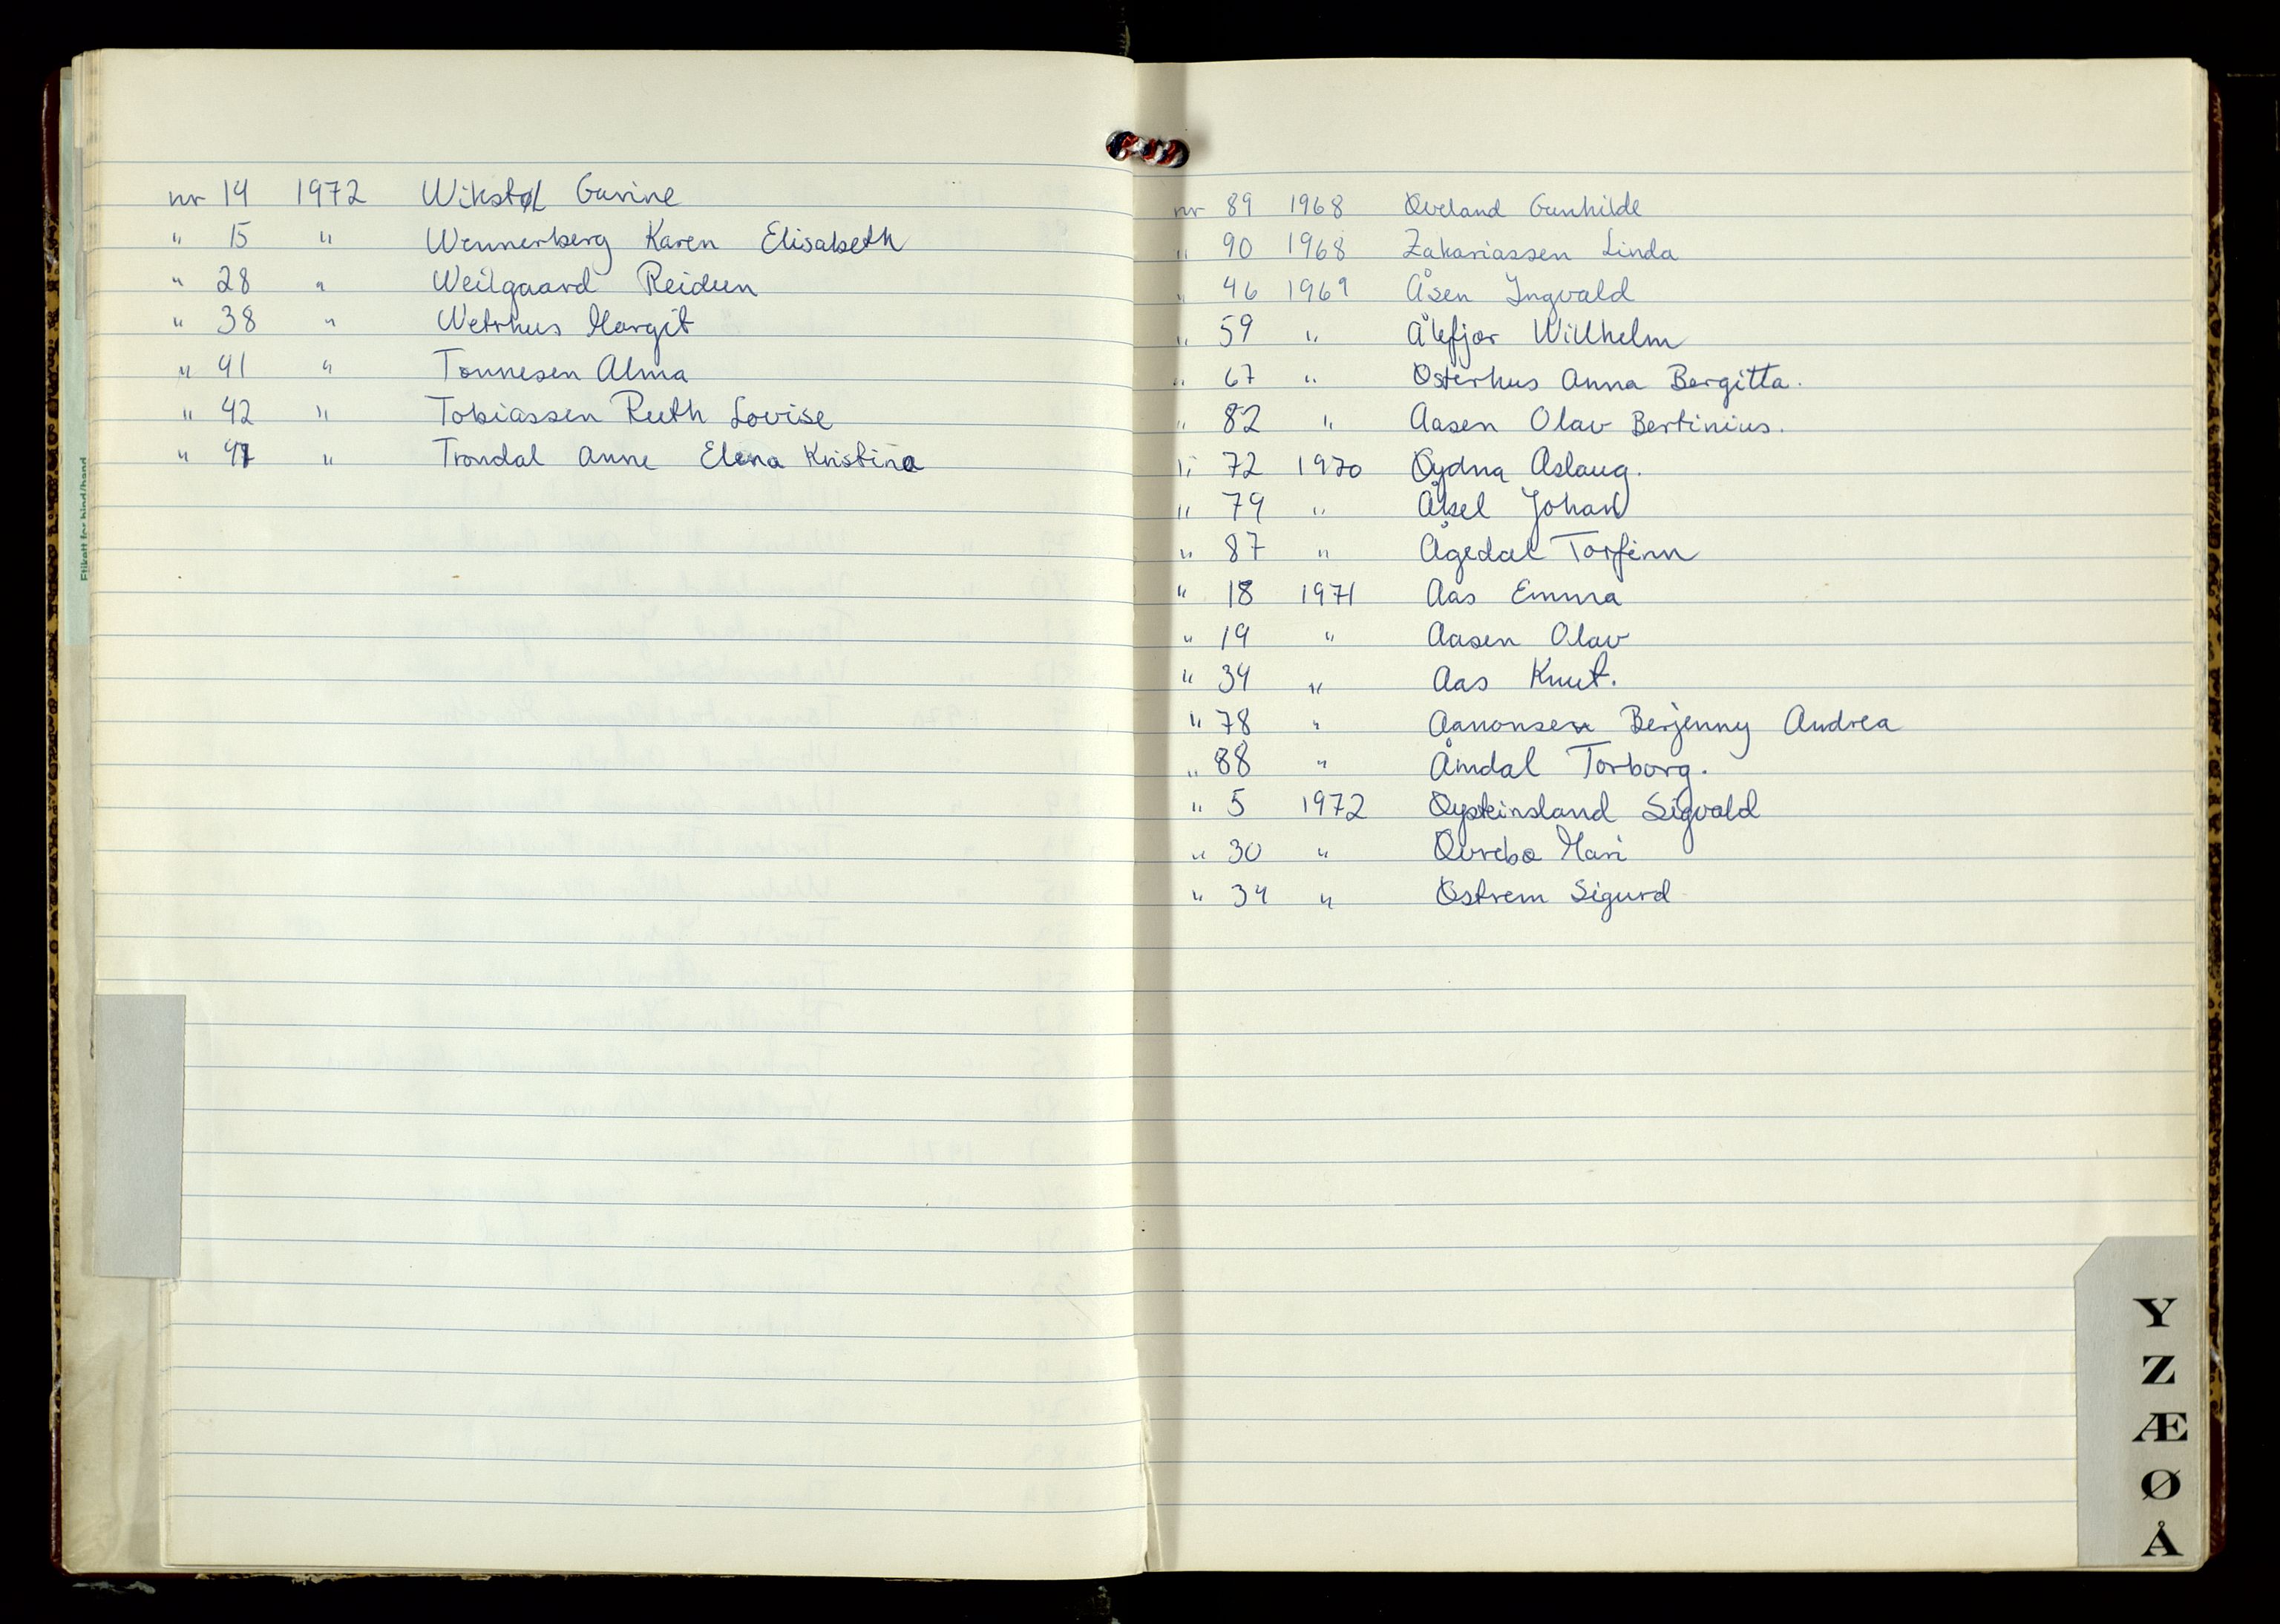 nr 14 1972 Wikstøl Gurine
" 15 " Wennerberg Karen Elisabeth
" 28 " Weilgaard Reidun
" 38 " Wetrhus Margit
" 41 " Tønnesen Alma
" 42 " Tobiassen Ruth Lovise
" 47 " Trondal Anne Elena Kristina
nr 89 1968 Øveland Gunhilde
" 90 1968 Zakariassen Linda
" 46 1969 Åsen Ingvald
" 59 " Ålefjær Willhelm
" 67 " Østerhus Anna Bergitta.
" 82 " Aasen Olav Bertinius.
" 72 1970 Øydna Aslaug.
" 79 " Åkel Johan
" 87 " Ågedal Torfinn
" 18 1971 Aas Emma
" 19 " Aasen Olav
" 34 " Aas Knut.
" 78 " Aanonsen Berjenny Andrea
" 88 " Åmdal Torborg.
" 5 1972 Øysteinsland Sigvald
" 30 " Øvrebø Mari
" 34 " Østrem Sigurd
Y
Z
Æ
Ø
Å